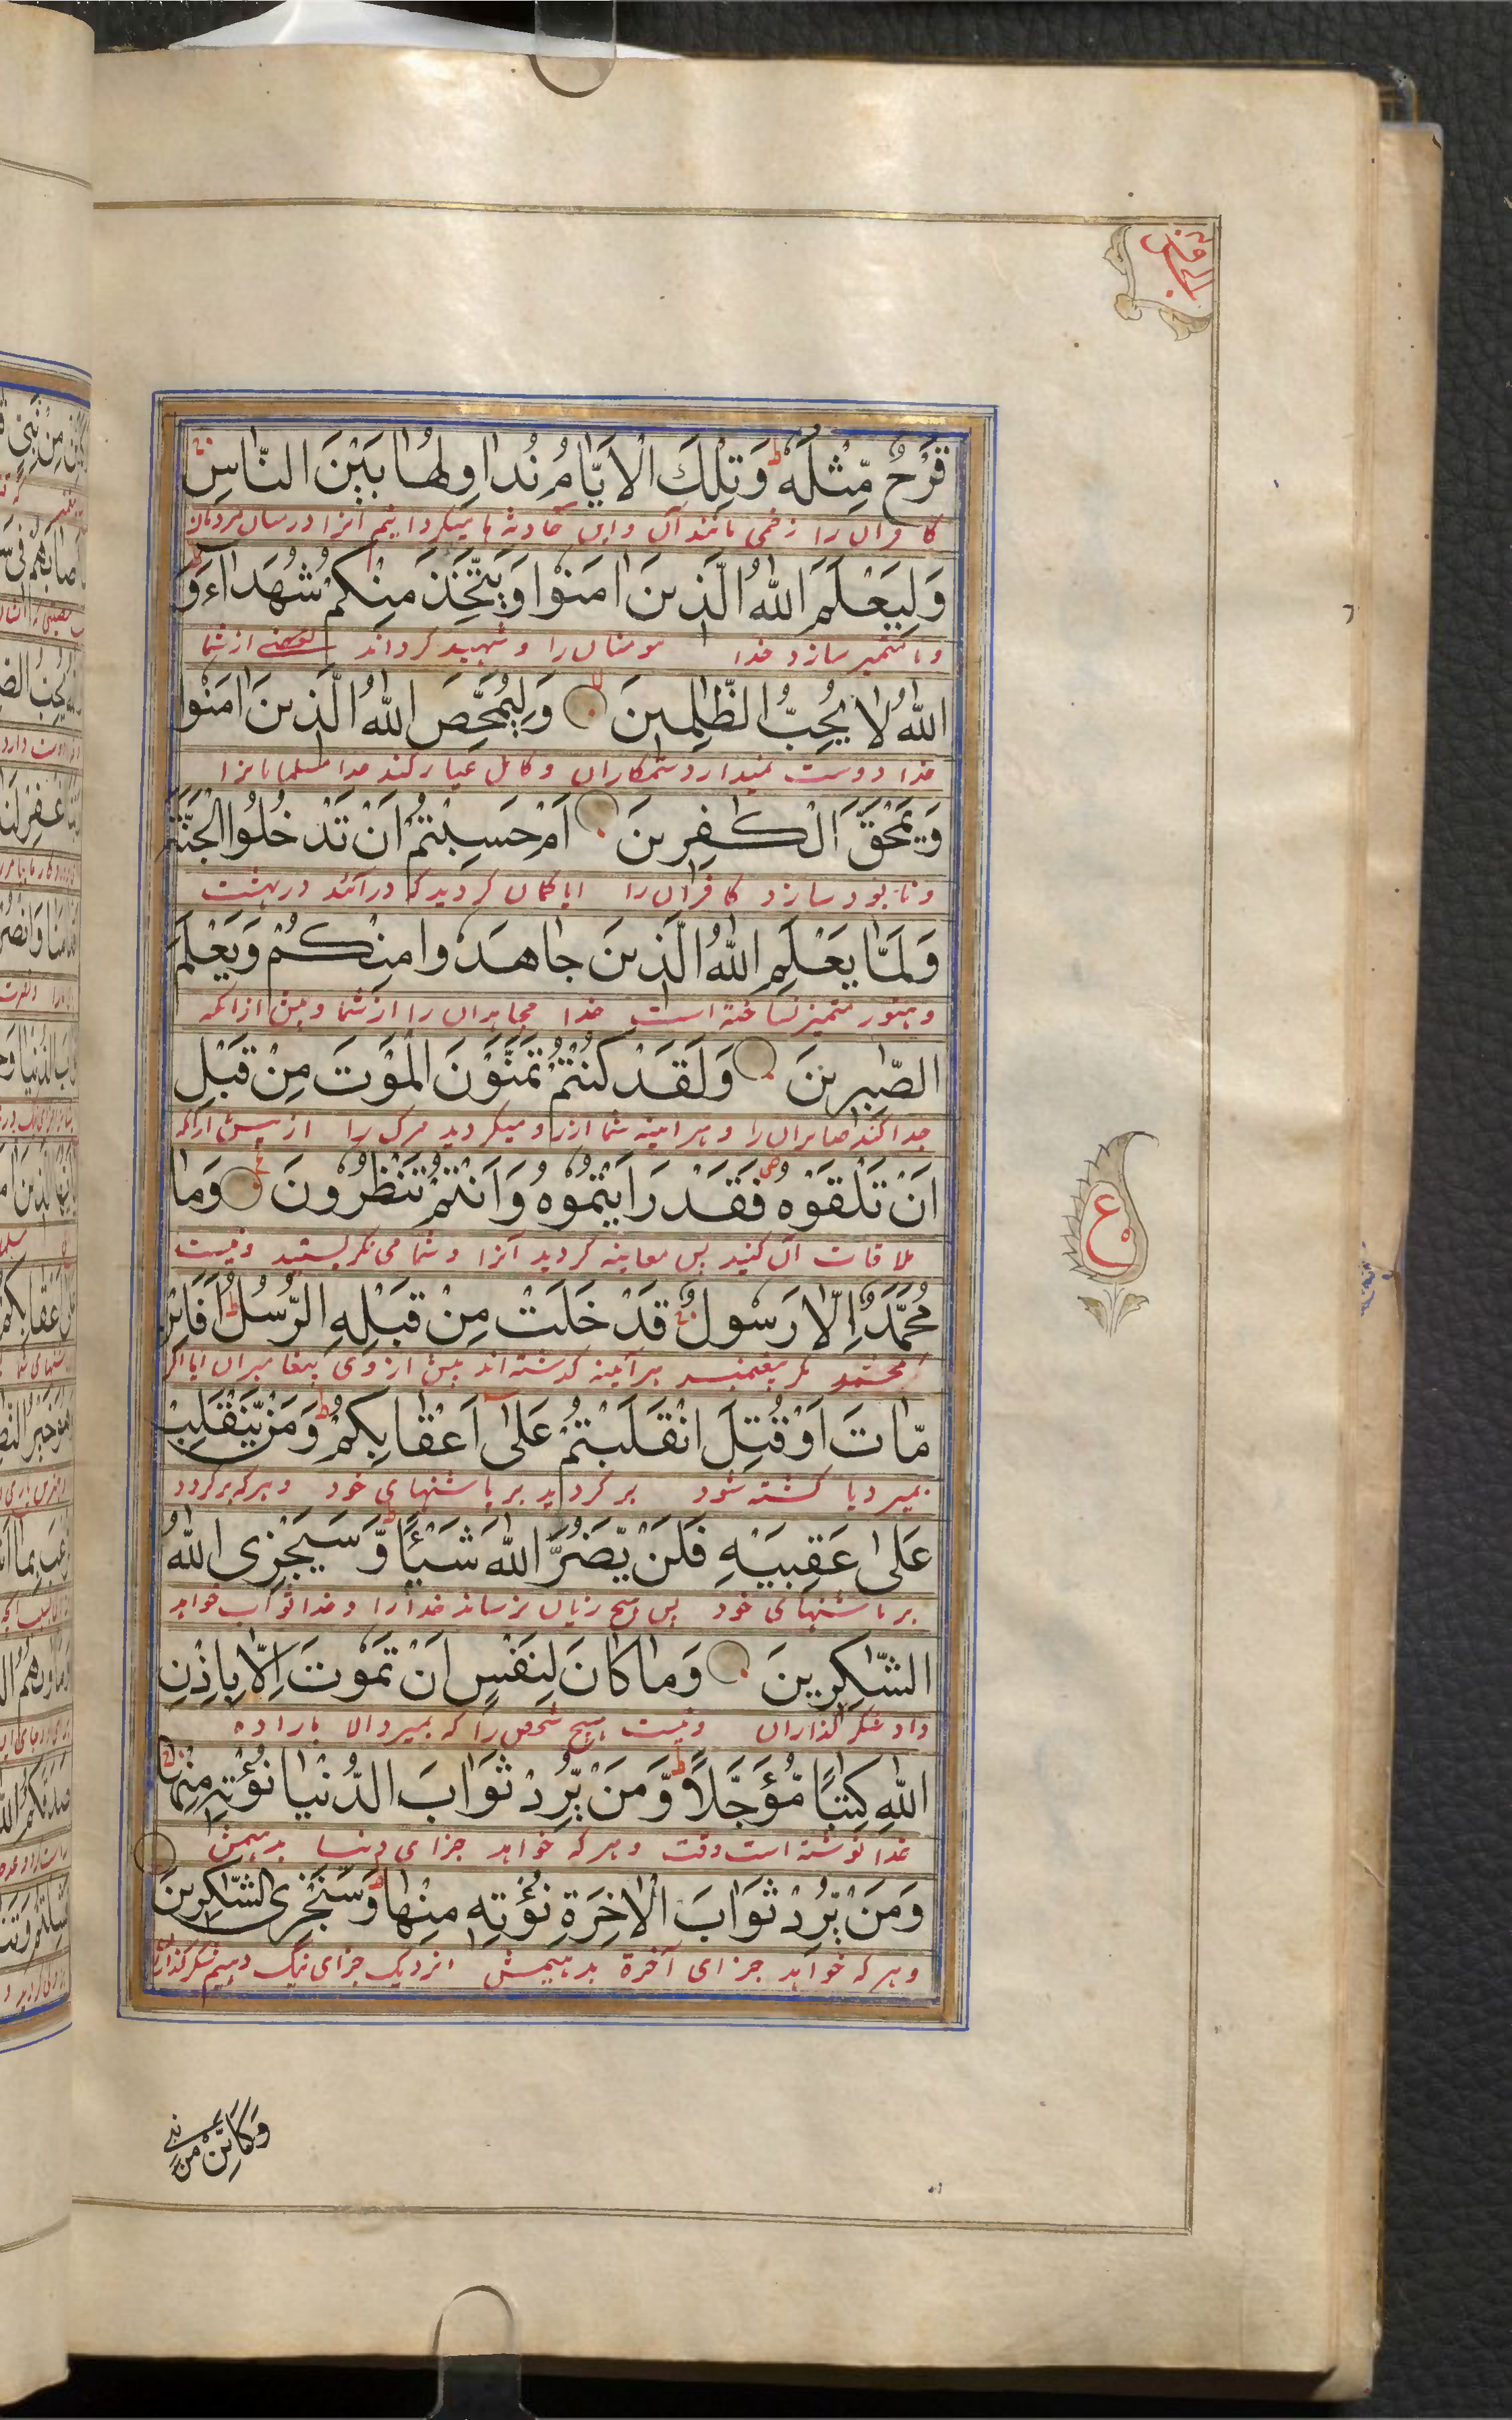 قَرْحٌ مِّثْلُهٗ ط وَتِلْكَ الْاَيَّامُ نُدَاوِلُهَا بَيْنَ النَّاسِ
كافران را زخمی مانند آن و این حادثه ها میگردانیم آنرا درمیان مردمان
وَلِيَعْلَمَ اللّٰهُ الَّذِينَ اٰمَنُوْا وَيَتَّخِذَ مِنْكُمْ شُهَدَاءَ وَ
و تا متمیز سازد خدا مومنان را و شهید گرداند بعضے از شما
اللّٰهُ لَا يُحِبُّ الظّٰلِمِينَ وَلِيُمَحِّصَ اللّٰهُ الَّذِينَ اٰمَنُوْا
خدا دوست نمیدارد ستمکاران و کامل عیار کند خدا مسلمانانرا
وَيَمْحَقَ الْكٰفِرِينَ اَمْ حَسِبْتُمْ اَنْ تَدْخُلُوا الْجَنَّةَ
و نابود سازد کافران را ایا گمان کردید که درآئید در بهشت
وَلَمَّا يَعْلَمِ اللّٰهُ الَّذِينَ جَاهَدُوْا مِنْكُمْ وَيَعْلَمَ
و هنوز متمیز نساخته است خدا مجاهدان را از شما و پیش ازانکه
الصّٰبِرِينَ وَلَقَدْ كُنْتُمْ تَمَنَّوْنَ الْمَوْتَ مِنْ قَبْلِ
جدا کند صابران را و هرآینه شما آرزو میکردید مرگ را از پیش ازانکه
اَنْ تَلْقَوْهُ فَقَدْ رَاَيْتُمُوْهُ وَاَنْتُمْ تَنْظُرُوْنَ وَمَا
ملاقات آن کنید پس معاینه کردید آنرا و شما می نگریستید و نیست
مُحَمَّدٌ اِلَّا رَسُوْلٌ قَدْ خَلَتْ مِنْ قَبْلِهِ الرُّسُلُ ط اَفَا۟ئِنْ
محمد مگر پیغمبر هرآینه گذشته اند پیش از وی پیغامبران ایا اگر
مَّاتَ اَوْ قُتِلَ انْقَلَبْتُمْ عَلٰى اَعْقَابِكُمْ ط وَمَنْ يَّنْقَلِبْ
بمیرد یا کشته شود برگردید بر پاشنهای خود و هرکه برگردد
عَلٰى عَقِبَيْهِ فَلَنْ يَّضُرَّ اللّٰهَ شَيْئًا ط وَّسَيَجْزِى اللّٰهُ
بر پاشنهای خود پس هیچ زیان نرساند خدارا و خدا ثواب خواهد
الشّٰكِرِينَ وَمَا كَانَ لِنَفْسٍ اَنْ تَمُوْتَ اِلَّا بِاِذْنِ
داد شکرگذاران و نیست هیچ شخص را که بمیرد الا باراده
اللّٰهِ كِتٰبًا مُّؤَجَّلًا ط وَّمَنْ يُّرِدْ ثَوَابَ الدُّنْيَا نُؤْتِهٖ مِنْهَا
خدا نوشته است وقت و هرکه خواهد جزای دنیا بدهیمش
وَمَنْ يُّرِدْ ثَوَابَ الْاٰخِرَةِ نُؤْتِهٖ مِنْهَا ط وَسَنَجْزِى الشّٰكِرِينَ
و هرکه خواهد جزای آخرة بدهیمش نزدیک جزای نیک دهیم شکرگذاران
ع
وَكَاَيِّنْ مِّنْ نَّبِيٍّ